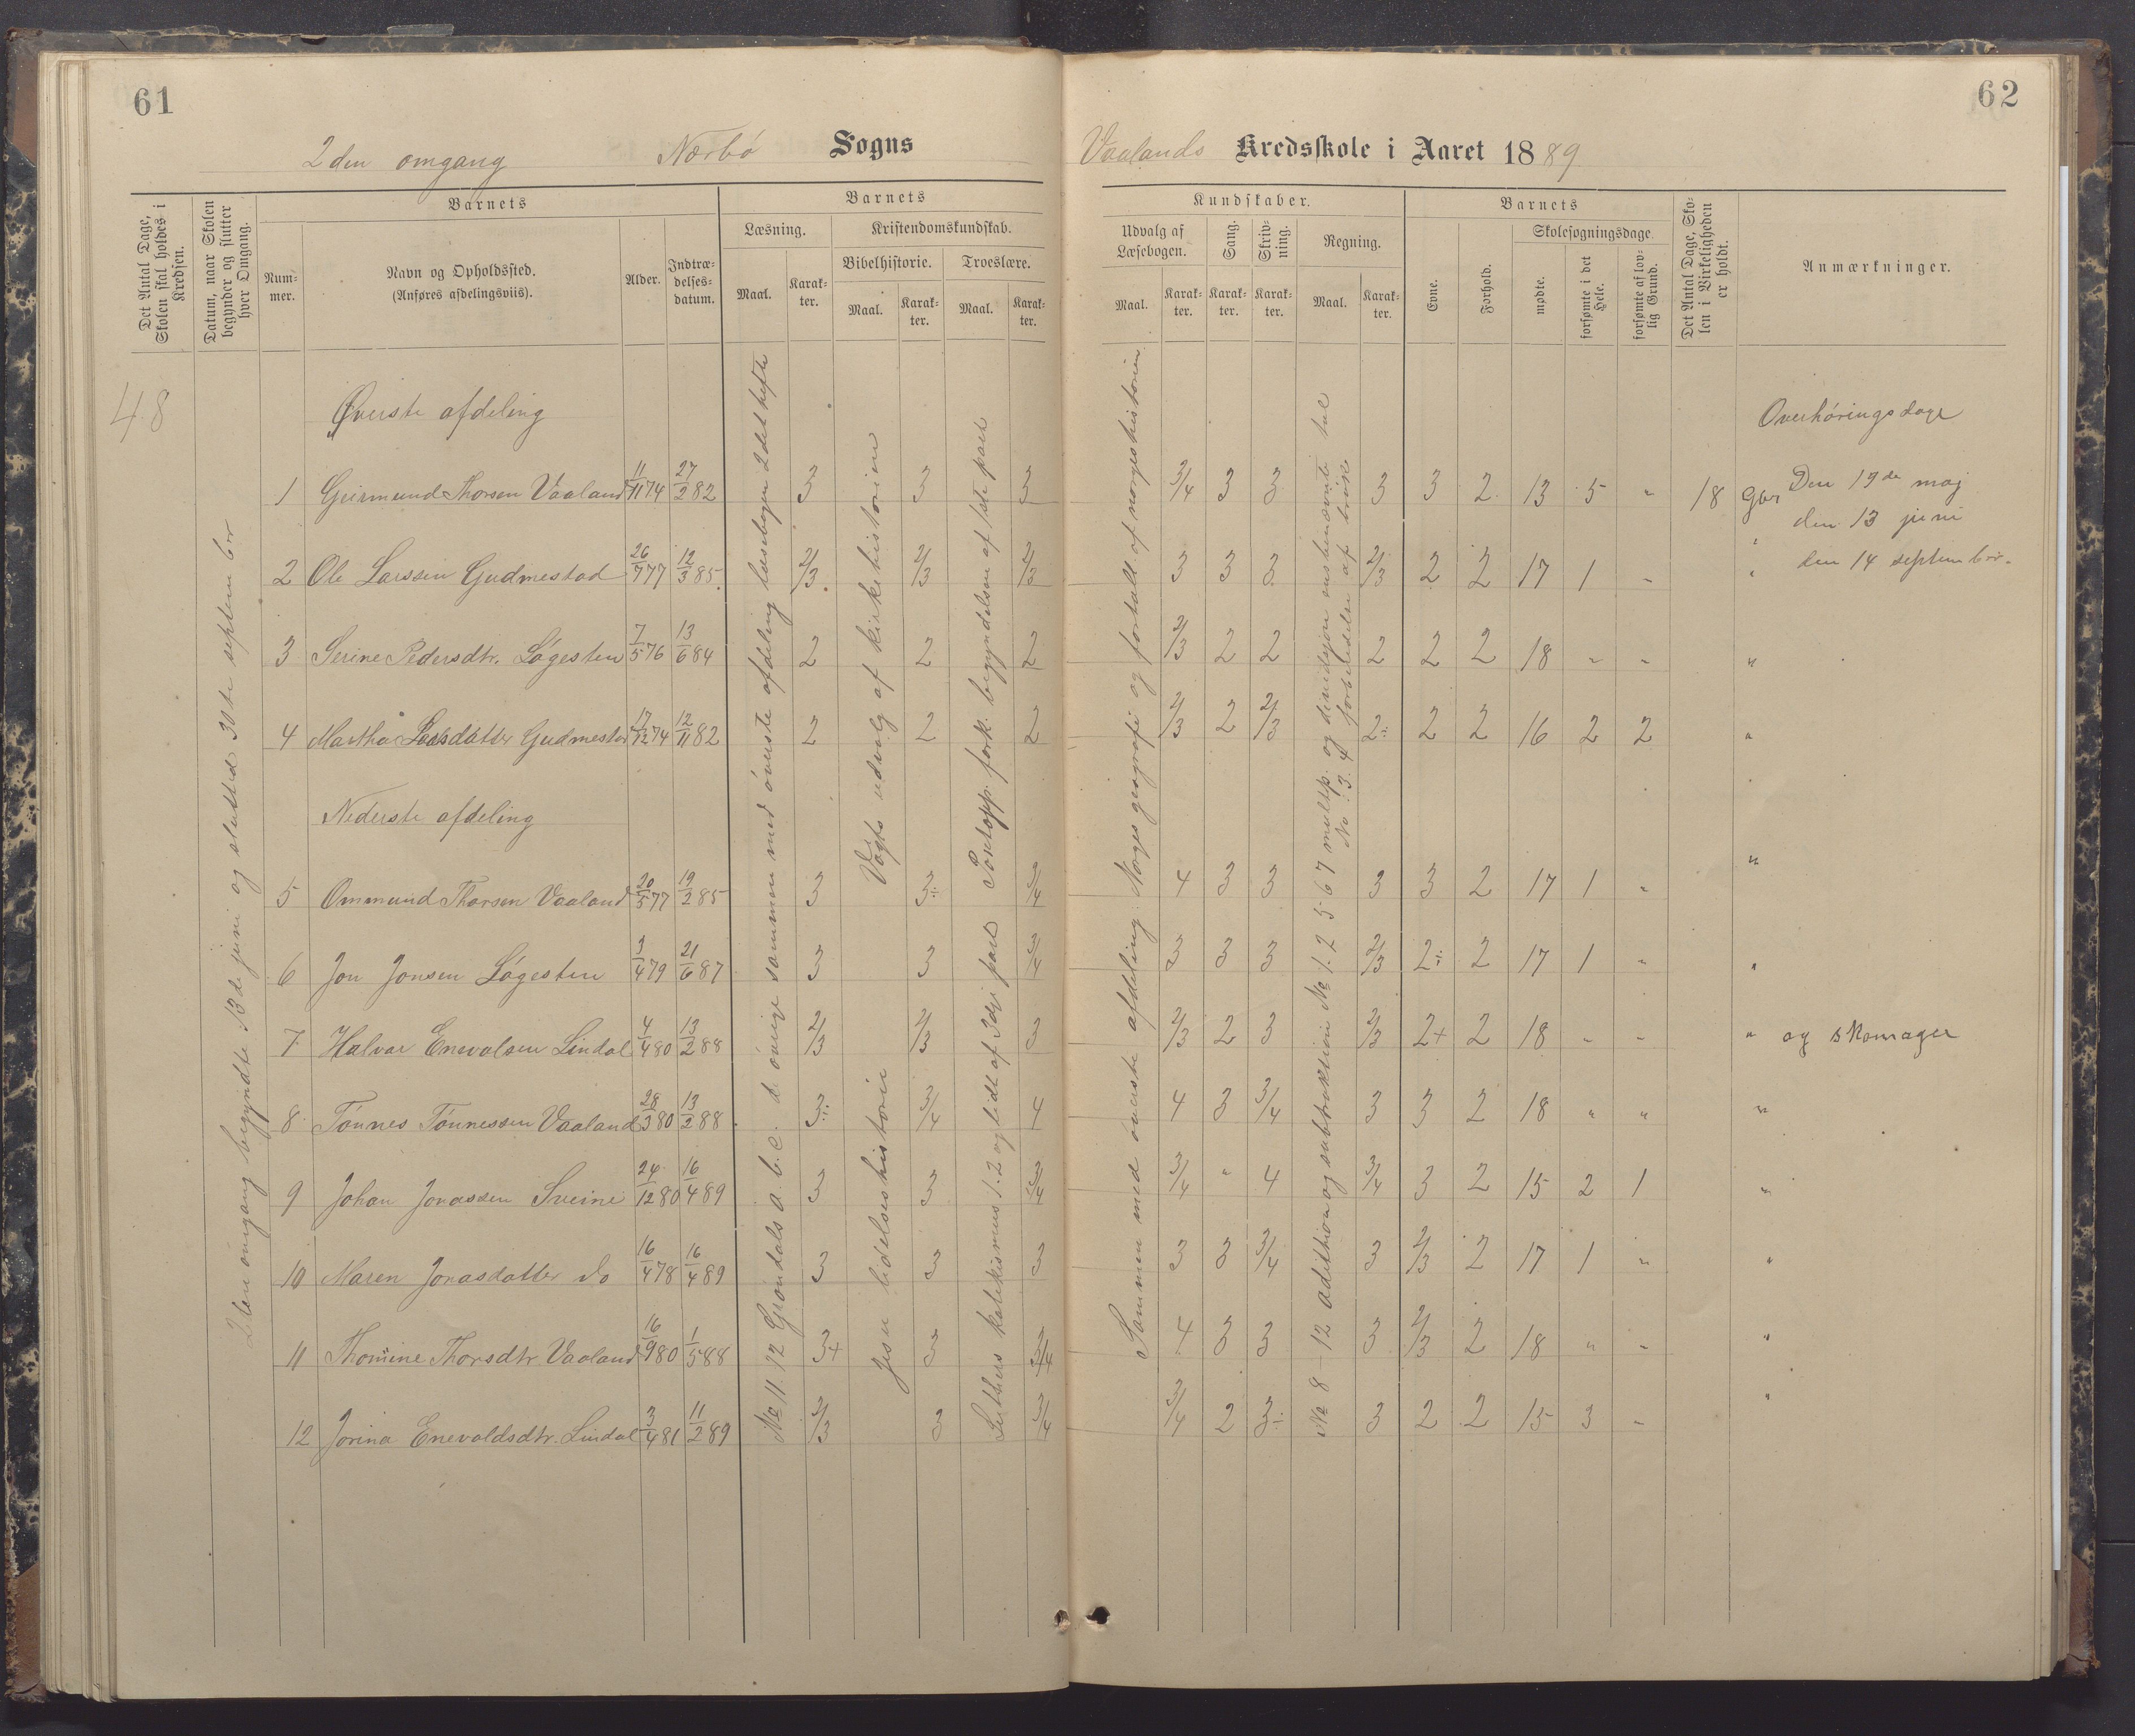 61
62
2den omgang Nærbø Sogns
Vaalands Kredsskole i Aaret 1889
Det Antal Dage, Skolen skal holdes i Kredsen.
Datum, naar Skolen begynder og slutter hver Omgang.
Barnets
Num-mer.
Navn og Opholdssted.
(Anføres afdelingsviis).
Alder.
Indtræ-delses-datum.
Barnets
Læsning.
Maal.
Karak-ter.
Kristendomskundskab.
Bibelhistorie.
Maal.
Karak-ter.
Troeslære.
Maal.
Karak-ter.
Kundskaber.
Udvalg af Læsebogen.
Maal.
Karak-ter.
Sang.
Karak-ter.
Skriv-ning.
Karak-ter.
Regning.
Maal.
Karak-ter.
Barnets
Evne.
Forhold.
Skolesøgningsdage.
mødte.
forsømte i det Hele.
forsømte af lov-lig Grund.
Det Antal Dage, Sko-len i Virkeligheden er holdt.
Anmærkninger.
48
2den omgang begyndte 13de juni og sluttede 30te septembr
Øverste afdeling
Overhøringsdage
1 Geirmund Thorsen Vaaland 11/11 74 27/2 82 3 3 3 3/4 3 3 3 3 2 13 5 " 18 Gbr Den 19de maj
den 13 juni
2 Ole Larssen Gudmestad 26/7 77 12/3 85 2/3 2/3 2/3 3 3 3 2/3 2 2 17 1 " " den 14 septembr.
3 Serine Pedersdtr. Løgesten 7/5 76 13/6 84 2 2 2 2/3 2 2 2 2 2 18 " " "
4 Martha Larsdatter Gudmestad 17/12 74 12/11 82 2 2 2 2/3 2 2/3 2÷ 2 2 16 2 2 "
Nederste afdeling
5 Ommund Thorsen Vaaland 20/5 77 19/2 85 3 3÷ 3/4 4 3 3 3 3 2 17 1 " "
6 Jon Jonsen Løgesten 3/4 79 21/6 87 3 3 3/4 3 3 3 2/3 2÷ 2 17 1 " "
7 Halvar Enevalsen Lindal 4/4 80 13/2 88 2/3 2/3 3 2/3 2 3 2/3 2+ 2 18 " " " og skomager
8 Tønnes Tønnessen Vaaland 28/3 80 13/2 88 3÷ 3/4 4 4 3 3/4 3 3 2 18 " " "
9 Johan Jonassen Sveine 24/12 80 16/4 89 3 3 3/4 3/4 " 4 3/4 3 2 15 2 1 "
10 Maren Jonasdatter do 16/4 78 16/4 89 3 3 3 3 3 3/4 3 2/3 2 17 1 " "
11 Thomine Thorsdtr Vaaland 16/9 80 1/5 88 3+ 3 3/4 4 3 3 3 2/3 2 18 " " "
12 Jorina Enevaldsdtr. Lindal 3/4 81 11/2 89 2/3 3 3/4 3/4 2 3÷ 3 2 2 15 3 " "
No 11. 12 Grøndals a. b. c. d. øvrige sammen med øverste afdeling læsebogen 2det hefte
Vogts udvalg af kirkehistorien
Jesu lidelseshistorie
Pontopp. fork. begyndelsen af 1ste part
Luthers katekismus 1. 2 og lidt af 3die part
Sammen med øverste afdeling. Norges geografi og fortalt af norgeshistorien
No 8–12 adithion og subtraktion No 1. 2 5. 6 7 multip. og dividsjon ensbenævnte tal
No 3. 4 forberedelse af brøk